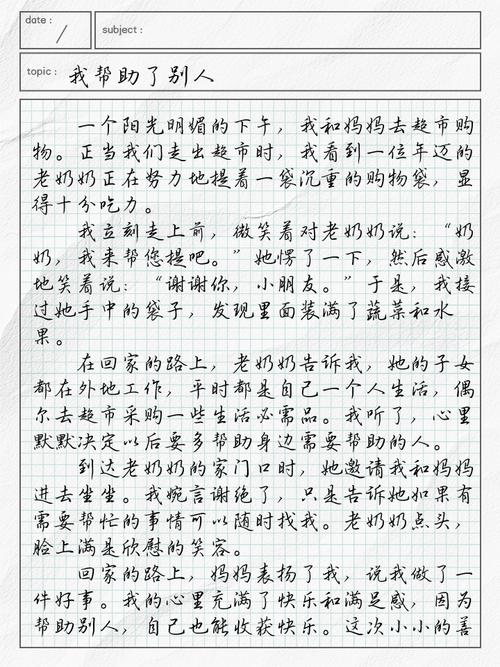 date :
subject :
topic : 我帮助了别人
一个阳光明媚的下午，我和妈妈去超市购
物。正当我们走出超市时，我看到一位年迈的
老奶奶正在努力地提着一袋沉重的购物袋，显
得十分吃力。
我立刻走上前，微笑着对老奶奶说：“奶
奶，我来帮您提吧。”她愣了一下，然后感激
地笑着说：“谢谢你，小朋友。”于是，我接
过她手中的袋子，发现里面装满了蔬菜和水
果。
在回家的路上，老奶奶告诉我，她的子女
都在外地工作，平时都是自己一个人生活，偶
尔去超市采购一些生活必需品。我听了，心里
默默决定以后要多帮助身边需要帮助的人。
到达老奶奶的家门口时，她邀请我和妈妈
进去坐坐。我婉言谢绝了，只是告诉她如果有
需要帮忙的事情可以随时找我。老奶奶点头，
脸上满是欣慰的笑容。
回家的路上，妈妈表扬了我，说我做了一
件好事。我的心里充满了快乐和满足感，因为
帮助别人，自己也能收获快乐。这次小小的善